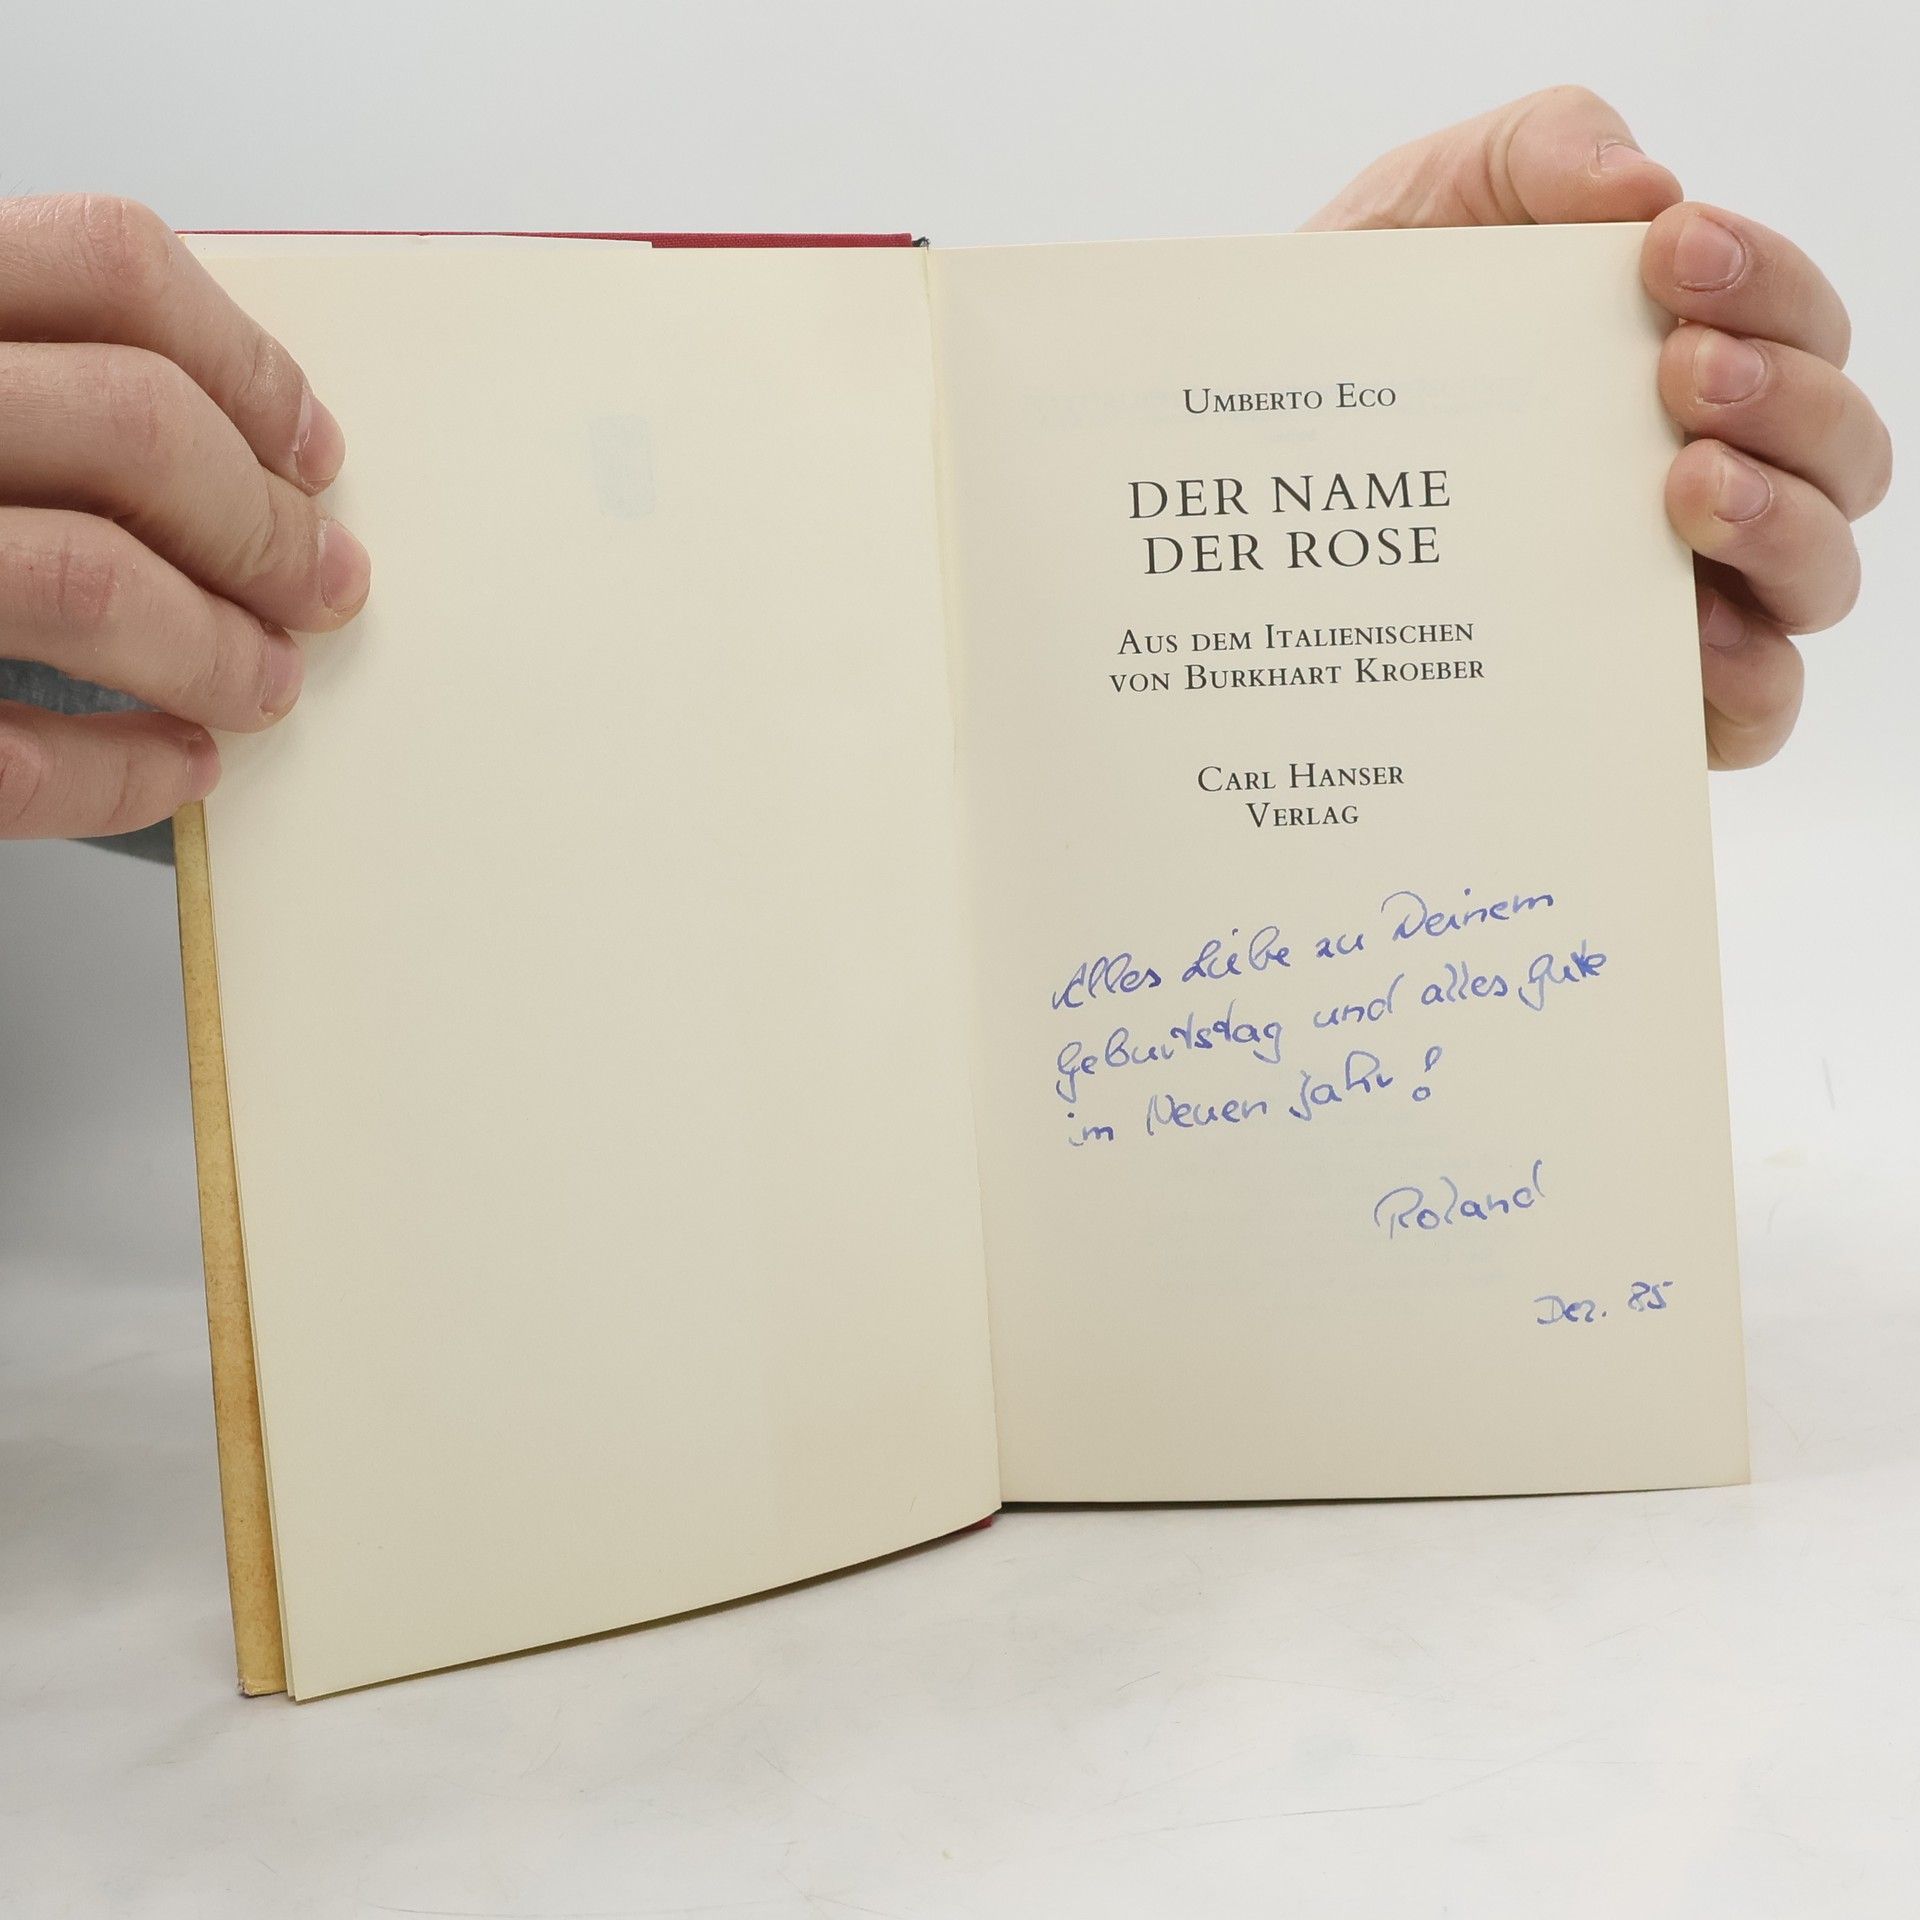 UMBERTO ECO
DER NAME
DER ROSE
AUS DEM ITALIENISCHEN
VON BURKHART KROEBER
CARL HANSER
VERLAG
Alles Liebe zu Deinem
Geburtstag und alles Gute
im Neuen Jahr!
Roland
Dez. 85